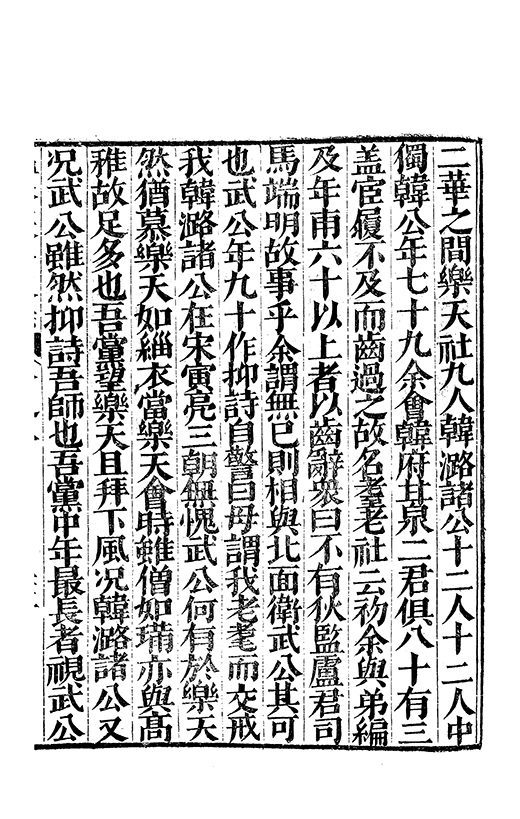 二華之間樂天社九人韓潞諸公十二人十二人中
獨韓公年七十九余會韓府甘泉二君俱八十有三
盖宦履不及而齒過之故名耆老社云初余與弟編
及年甫六十以上者以齒辭衆曰不有狄監盧君司
馬端明故事乎余謂無已則相與北面衛武公其可
也武公年九十作抑詩自警曰毋謂我老耄而交戒
我韓潞諸公在宋寅亮三朝無愧武公何有於樂天
然猶慕樂天如緇衣當樂天會時雖僧如瑀亦與高
稚故足多也吾黨望樂天且拜下風况韓潞諸公又
况武公雖然抑詩吾師也吾黨中年最長者視武公